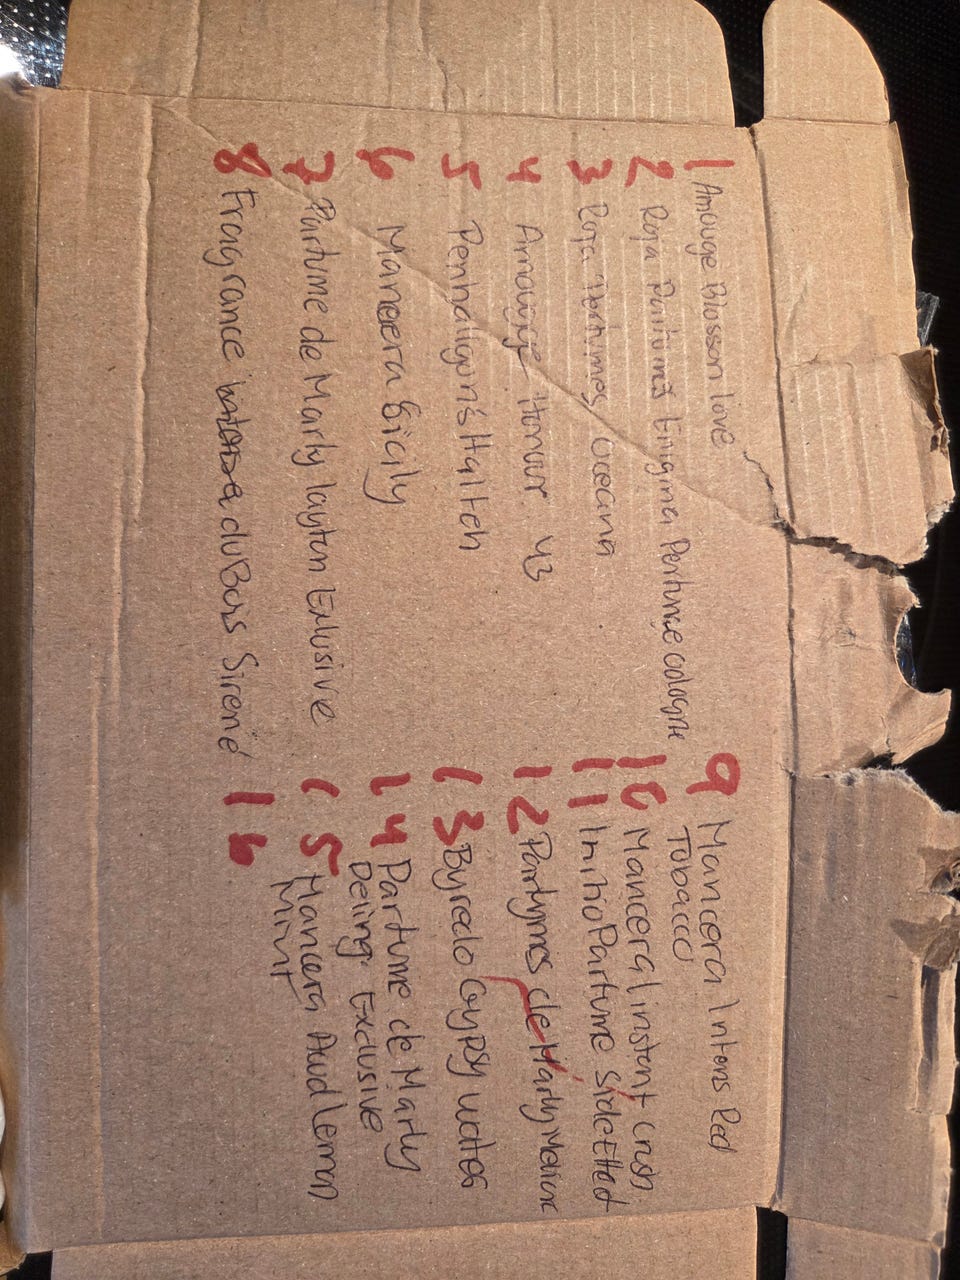 1 Amouge Blossom love
2 Roja Parfums Enigma Perfume cologne
3 Roja Parfumes Oceana
4 Amouage Honour 43
5 Penhaligon's Halfeh
6 Mancera Sicily
7 Parfume de Marly layton Exlusive
8 Fragrance du Bois Sirené
9 Mancera Intens Red
Tobacco
10 Mancera linstant crush
11 Initio Parfume Side Effed
12 Parfymes de Marly
13 Byredo Gypsy water
14 Parfume de Marly
Deling Exclusive
15 Mancera Aud Lemon
Mint
16